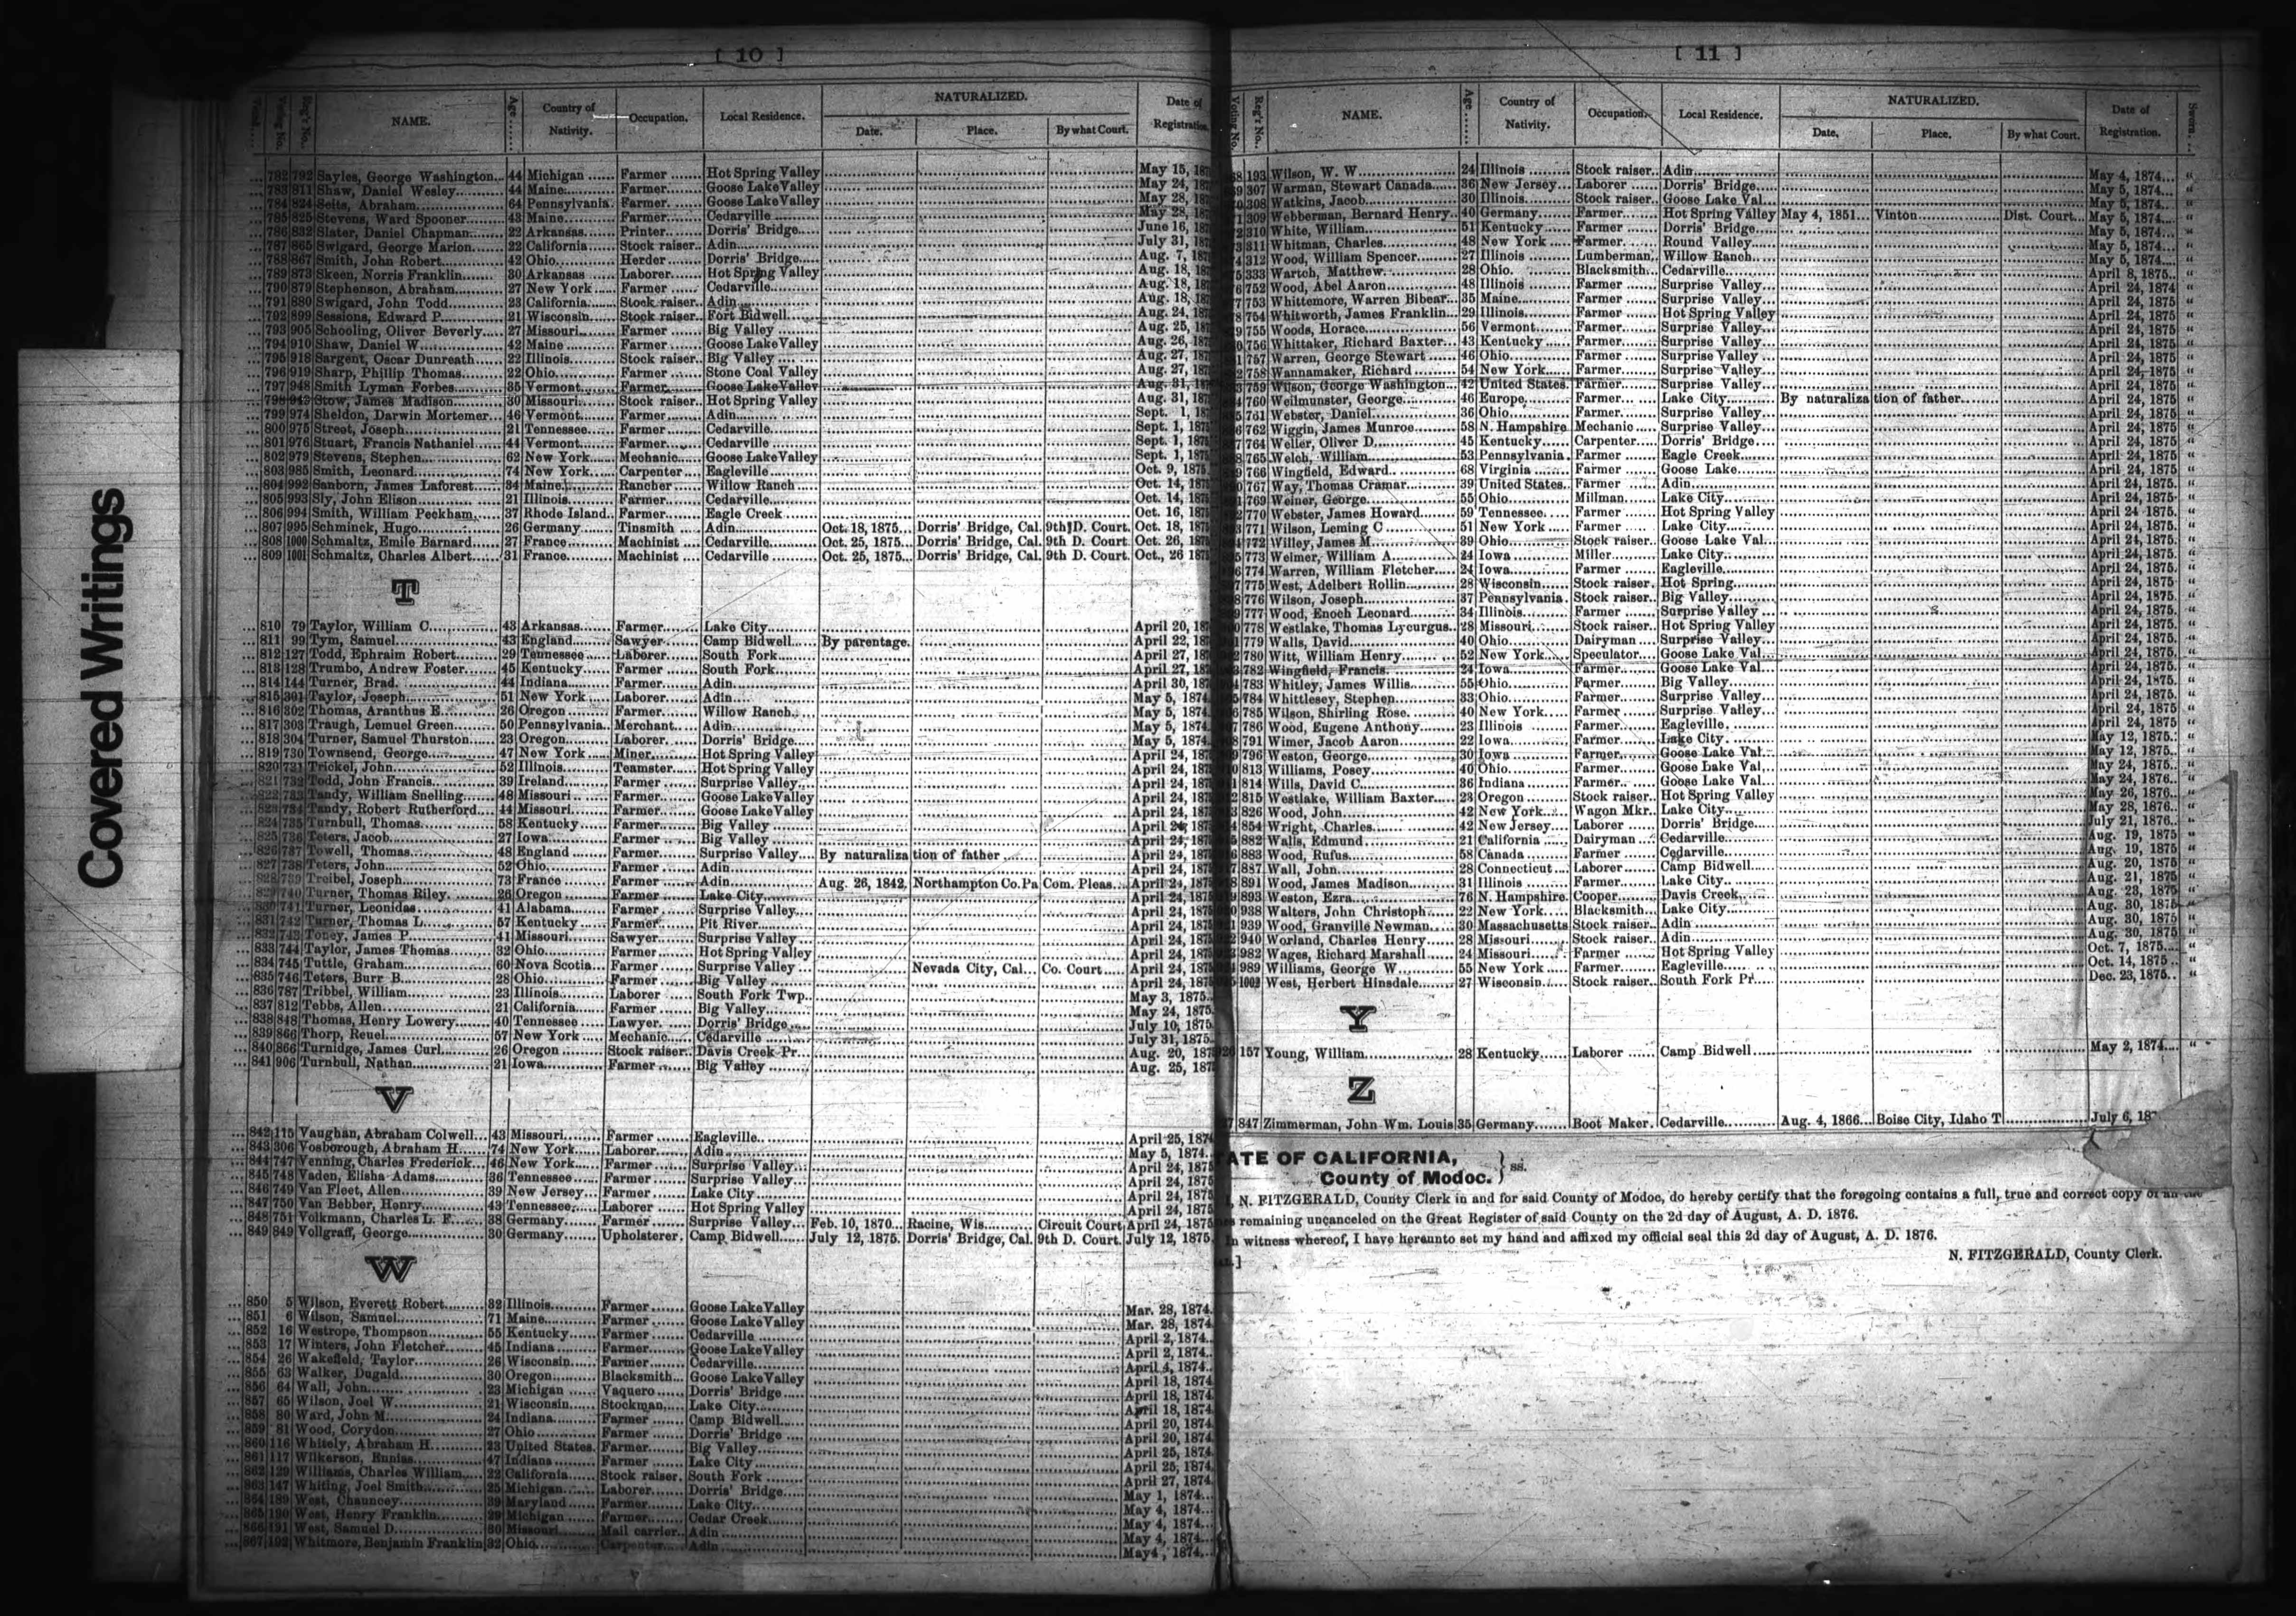 Covered Writings
[ 10 ]
Voting No. Reg'r No. NAME. Age Country of Nativity. Occupation. Local Residence. NATURALIZED. Date. Place. By what Court. Date of Registration.
782 792 Sayles, George Washington 44 Michigan Farmer Hot Spring Valley May 15, 187
783 811 Shaw, Daniel Wesley 44 Maine Farmer Goose Lake Valley May 24, 187
784 824 Seits, Abraham 64 Pennsylvania Farmer Goose Lake Valley May 28, 187
785 825 Stevens, Ward Spooner 43 Maine Farmer Cedarville May 28, 187
786 832 Slater, Daniel Chapman 22 Arkansas Printer Dorris' Bridge June 16, 187
787 865 Swigard, George Marion 22 California Stock raiser Adin July 31, 187
788 867 Smith, John Robert 42 Ohio Herder Dorris' Bridge Aug. 7, 187
789 873 Skeen, Norris Franklin 30 Arkansas Laborer Hot Spring Valley Aug. 18, 187
790 879 Stephenson, Abraham 27 New York Farmer Cedarville Aug. 18, 187
791 880 Swigard, John Todd 23 California Stock raiser Adin Aug. 18, 187
792 899 Sessions, Edward P. 21 Wisconsin Stock raiser Fort Bidwell Aug. 24, 187
793 905 Schooling, Oliver Beverly 27 Missouri Farmer Big Valley Aug. 25, 187
794 910 Shaw, Daniel W. 42 Maine Farmer Goose Lake Valley Aug. 26, 187
795 918 Sargent, Oscar Dunreath 22 Illinois Stock raiser Big Valley Aug. 27, 187
796 919 Sharp, Phillip Thomas 22 Ohio Farmer Stone Coal Valley Aug. 27, 187
797 948 Smith Lyman Forbes 35 Vermont Farmer Goose Lake Valley Aug. 31, 187
798 943 Stow, James Madison 30 Missouri Stock raiser Hot Spring Valley Aug. 31, 187
799 974 Sheldon, Darwin Mortemer 46 Vermont Farmer Adin Sept. 1, 187
800 975 Street, Joseph 21 Tennessee Farmer Cedarville Sept. 1, 187
801 976 Stuart, Francis Nathaniel 44 Vermont Farmer Cedarville Sept. 1, 1875
802 979 Stevens, Stephen 62 New York Mechanic Goose Lake Valley Sept. 1, 1875
803 985 Smith, Leonard 74 New York Carpenter Eagleville Oct. 9, 1875
804 992 Sanborn, James Laforest 34 Maine Rancher Willow Ranch Oct. 14, 1875
805 993 Sly, John Elison 21 Illinois Farmer Cedarville Oct. 14, 1875
806 994 Smith, William Peckham 37 Rhode Island Farmer Eagle Creek Oct. 16, 1875
807 995 Schminck, Hugo 26 Germany Tinsmith Adin Oct. 18, 1875 Dorris' Bridge, Cal. 9th D. Court. Oct. 18, 1875
808 1000 Schmaltz, Emile Barnard 27 France Machinist Cedarville Oct. 25, 1875 Dorris' Bridge, Cal. 9th D. Court. Oct. 26, 1875
809 1001 Schmaltz, Charles Albert 31 France Machinist Cedarville Oct. 25, 1875 Dorris' Bridge, Cal. 9th D. Court. Oct., 26 1875
T
810 79 Taylor, William C. 43 Arkansas Farmer Lake City April 20, 187
811 99 Tym, Samuel 43 England Sawyer Camp Bidwell By parentage. April 22, 187
812 127 Todd, Ephraim Robert 29 Tennessee Laborer South Fork April 27, 187
813 128 Trumbo, Andrew Foster 45 Kentucky Farmer South Fork April 27, 187
814 144 Turner, Brad. 44 Indiana Farmer Adin April 30, 187
815 301 Taylor, Joseph 51 New York Laborer Adin May 5, 1874
816 302 Thomas, Aranthus E. 26 Oregon Farmer Willow Ranch May 5, 1874
817 303 Traugh, Lemuel Green 50 Pennsylvania Merchant Adin May 5, 1874
818 304 Turner, Samuel Thurston 23 Oregon Laborer Dorris' Bridge May 5, 1874
819 730 Townsend, George 47 New York Miner Hot Spring Valley April 24, 187
820 731 Trickel, John 52 Illinois Teamster Hot Spring Valley April 24, 187
821 732 Todd, John Francis 39 Ireland Farmer Surprise Valley April 24, 187
822 733 Tandy, William Snelling 48 Missouri Farmer Goose Lake Valley April 24, 187
823 734 Tandy, Robert Rutherford 44 Missouri Farmer Goose Lake Valley April 24, 187
824 735 Turnbull, Thomas 58 Kentucky Farmer Big Valley April 24, 187
825 736 Teters, Jacob 27 Iowa Farmer Big Valley April 24, 187
826 737 Towell, Thomas 48 England Farmer Surprise Valley By naturalization of father April 24, 187
827 738 Teters, John 52 Ohio Farmer Adin April 24, 187
828 739 Treibel, Joseph 73 France Farmer Adin Aug. 26, 1842 Northampton Co. Pa Com. Pleas April 24, 187
829 740 Turner, Thomas Riley 26 Oregon Farmer Lake City April 24, 1875
830 741 Turner, Leonidas 41 Alabama Farmer Surprise Valley April 24, 1875
831 742 Turner, Thomas L. 57 Kentucky Farmer Pit River April 24, 1875
832 743 Toney, James P. 41 Missouri Sawyer Surprise Valley April 24, 1875
833 744 Taylor, James Thomas 32 Ohio Farmer Hot Spring Valley April 24, 1875
834 745 Tuttle, Graham 60 Nova Scotia Farmer Surprise Valley Nevada City, Cal. Co. Court April 24, 1875
835 746 Teters, Burr B. 28 Ohio Farmer Big Valley April 24, 1875
836 787 Tribbel, William 23 Illinois Laborer South Fork Twp. May 3, 1875
837 812 Tebbs, Allen 21 California Farmer Big Valley May 24, 1875
838 848 Thomas, Henry Lowery 40 Tennessee Lawyer Dorris' Bridge July 10, 1875
839 866 Thorp, Reuel 57 New York Mechanic Cedarville July 31, 1875
840 866 Turnidge, James Curl 26 Oregon Stock raiser Davis Creek Pr. Aug. 20, 187
841 906 Turnbull, Nathan 21 Iowa Farmer Big Valley Aug. 25, 187
V
842 115 Vaughan, Abraham Colwell 43 Missouri Farmer Eagleville April 25, 1874
843 306 Vosborough, Abraham H. 74 New York Laborer Adin May 5, 1874
844 747 Venning, Charles Frederick 46 New York Farmer Surprise Valley April 24, 1875
845 748 Vaden, Elisha Adams 36 Tennessee Farmer Surprise Valley April 24, 1875
846 749 Van Fleet, Allen 39 New Jersey Farmer Lake City April 24, 1875
847 750 Van Bebber, Henry 43 Tennessee Laborer Hot Spring Valley April 24, 1875
848 751 Volkmann, Charles L. F. 38 Germany Farmer Surprise Valley Feb. 10, 1870 Racine, Wis. Circuit Court April 24, 1875
849 849 Vollgraff, George 30 Germany Upholsterer Camp Bidwell July 12, 1875 Dorris' Bridge, Cal. 9th D. Court. July 12, 1875
W
850 5 Wilson, Everett Robert 32 Illinois Farmer Goose Lake Valley Mar. 28, 1874
851 6 Wilson, Samuel 71 Maine Farmer Goose Lake Valley Mar. 28, 1874
852 16 Westrope, Thompson 55 Kentucky Farmer Cedarville April 2, 1874
853 17 Winters, John Fletcher 45 Indiana Farmer Goose Lake Valley April 2, 1874
854 26 Wakefield, Taylor 26 Wisconsin Farmer Cedarville April 4, 1874
855 63 Walker, Dugald 30 Oregon Blacksmith Goose Lake Valley April 18, 1874
856 64 Wall, John 23 Michigan Vaquero Dorris' Bridge April 18, 1874
857 65 Wilson, Joel W. 21 Wisconsin Stockman Lake City April 18, 1874
858 80 Ward, John M. 24 Indiana Farmer Camp Bidwell April 20, 1874
859 81 Wood, Corydon 27 Ohio Farmer Dorris' Bridge April 20, 1874
860 116 Whitely, Abraham H. 23 United States Farmer Big Valley April 25, 1874
861 117 Wilkerson, Eunias 47 Indiana Farmer Lake City April 25, 1874
862 129 Williams, Charles William 22 California Stock raiser South Fork April 27, 1874
863 147 Whiting, Joel Smith 25 Michigan Laborer Dorris' Bridge May 1, 1874
864 189 West, Chauncey 39 Maryland Farmer Lake City May 4, 1874
865 190 West, Henry Franklin 29 Michigan Farmer Cedar Creek May 4, 1874
866 191 West, Samuel D. 30 Missouri Mail carrier Adin May 4, 1874
867 192 Whitmore, Benjamin Franklin 32 Ohio Carpenter Adin May 4, 1874
[ 11 ]
Voting No. Reg'r No. NAME. Age Country of Nativity. Occupation. Local Residence. NATURALIZED. Date. Place. By what Court. Date of Registration. Sworn.
193 Wilson, W. W 24 Illinois Stock raiser Adin May 4, 1874 "
307 Warman, Stewart Canada 36 New Jersey Laborer Dorris' Bridge May 5, 1874 "
308 Watkins, Jacob 30 Illinois Stock raiser Goose Lake Val. May 5, 1874 "
309 Webberman, Bernard Henry 40 Germany Farmer Hot Spring Valley May 4, 1851 Vinton Dist. Court May 5, 1874 "
310 White, William 51 Kentucky Farmer Dorris' Bridge May 5, 1874 "
311 Whitman, Charles 48 New York Farmer Round Valley May 5, 1874 "
312 Wood, William Spencer 27 Illinois Lumberman Willow Ranch May 5, 1874 "
333 Wartch, Matthew 28 Ohio Blacksmith Cedarville April 8, 1875 "
752 Wood, Abel Aaron 48 Illinois Farmer Surprise Valley April 24, 1874 "
753 Whittemore, Warren Bibear 35 Maine Farmer Surprise Valley April 24, 1875 "
754 Whitworth, James Franklin 29 Illinois Farmer Hot Spring Valley April 24, 1875 "
755 Woods, Horace 56 Vermont Farmer Surprise Valley April 24, 1875 "
756 Whittaker, Richard Baxter 43 Kentucky Farmer Surprise Valley April 24, 1875 "
757 Warren, George Stewart 46 Ohio Farmer Surprise Valley April 24, 1875 "
758 Wannamaker, Richard 54 New York Farmer Surprise Valley April 24, 1875 "
759 Wilson, George Washington 42 United States Farmer Surprise Valley April 24, 1875 "
760 Weilmunster, George 46 Europe Farmer Lake City By naturalization of father April 24, 1875 "
761 Webster, Daniel 36 Ohio Farmer Surprise Valley April 24, 1875 "
762 Wiggin, James Munroe 58 N. Hampshire Mechanic Surprise Valley April 24, 1875 "
764 Weller, Oliver D. 45 Kentucky Carpenter Dorris' Bridge April 24, 1875 "
765 Welch, William 53 Pennsylvania Farmer Eagle Creek April 24, 1875 "
766 Wingfield, Edward 68 Virginia Farmer Goose Lake April 24, 1875 "
767 Way, Thomas Cramar 39 United States Farmer Adin April 24, 1875 "
769 Weiner, George 55 Ohio Millman Lake City April 24, 1875 "
770 Webster, James Howard 59 Tennessee Farmer Hot Spring Valley April 24, 1875 "
771 Wilson, Leming C 51 New York Farmer Lake City April 24, 1875 "
772 Willey, James M. 39 Ohio Stock raiser Goose Lake Val. April 24, 1875 "
773 Weimer, William A. 24 Iowa Miller Lake City April 24, 1875 "
774 Warren, William Fletcher 24 Iowa Farmer Eagleville April 24, 1875 "
775 West, Adelbert Rollin 28 Wisconsin Stock raiser Hot Spring April 24, 1875 "
776 Wilson, Joseph 37 Pennsylvania Stock raiser Big Valley April 24, 1875 "
777 Wood, Enoch Leonard 34 Illinois Farmer Surprise Valley April 24, 1875 "
778 Westlake, Thomas Lycurgus 28 Missouri Stock raiser Hot Spring Valley April 24, 1875 "
779 Walls, David 40 Ohio Dairyman Surprise Valley April 24, 1875 "
780 Witt, William Henry 52 New York Speculator Goose Lake Val. April 24, 1875 "
782 Wingfield, Francis 24 Iowa Farmer Goose Lake Val. April 24, 1875 "
783 Whitley, James Willis 55 Ohio Farmer Big Valley April 24, 1875 "
784 Whittlesey, Stephen 33 Ohio Farmer Surprise Valley April 24, 1875 "
785 Wilson, Shirling Rose 40 New York Farmer Surprise Valley April 24, 1875 "
786 Wood, Eugene Anthony 23 Illinois Farmer Eagleville April 24, 1875 "
791 Wimer, Jacob Aaron 22 Iowa Farmer Lake City May 12, 1875 "
796 Weston, George 30 Iowa Farmer Goose Lake Val. May 12, 1875 "
813 Williams, Posey 40 Ohio Farmer Goose Lake Val. May 24, 1875 "
814 Wills, David C. 36 Indiana Farmer Goose Lake Val. May 24, 1876 "
815 Westlake, William Baxter 28 Oregon Stock raiser Hot Spring Valley May 26, 1876 "
826 Wood, John 42 New York Wagon Mkr. Lake City May 28, 1876 "
854 Wright, Charles 42 New Jersey Laborer Dorris' Bridge July 21, 1876 "
882 Walls, Edmund 21 California Dairyman Cedarville Aug. 19, 1875 "
883 Wood, Rufus 58 Canada Farmer Cedarville Aug. 19, 1875 "
887 Wall, John 28 Connecticut Laborer Camp Bidwell Aug. 20, 1875 "
891 Wood, James Madison 31 Illinois Farmer Lake City Aug. 21, 1875 "
893 Weston, Ezra 76 N. Hampshire Cooper Davis Creek Aug. 23, 1875 "
938 Walters, John Christoph 22 New York Blacksmith Lake City Aug. 30, 1875 "
939 Wood, Granville Newman 30 Massachusetts Stock raiser Adin Aug. 30, 1875 "
940 Worland, Charles Henry 28 Missouri Stock raiser Adin Aug. 30, 1875 "
982 Wages, Richard Marshall 24 Missouri Farmer Hot Spring Valley Oct. 7, 1875 "
989 Williams, George W. 55 New York Farmer Eagleville Oct. 14, 1875 "
1002 West, Herbert Hinsdale 27 Wisconsin Stock raiser South Fork Pr. Dec. 23, 1875 "
Y
157 Young, William 28 Kentucky Laborer Camp Bidwell May 2, 1874 "
Z
847 Zimmerman, John Wm. Louis 35 Germany Boot Maker Cedarville Aug. 4, 1866 Boise City, Idaho T. July 6, 187
ATE OF CALIFORNIA,
County of Modoc. } ss.
I, N. FITZGERALD, County Clerk in and for said County of Modoc, do hereby certify that the foregoing contains a full, true and correct copy of all the
remaining uncanceled on the Great Register of said County on the 2d day of August, A. D. 1876.
In witness whereof, I have hereunto set my hand and affixed my official seal this 2d day of August, A. D. 1876.
N. FITZGERALD, County Clerk.